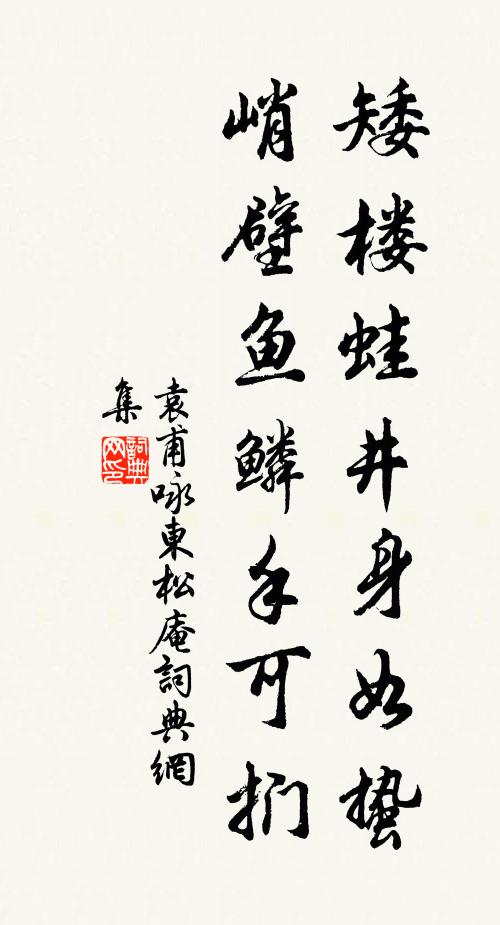 矮楼蛙井身如蛰
峭壁鱼鳞手可扪
袁甫咏東松庵詞典網
集
詞典网印